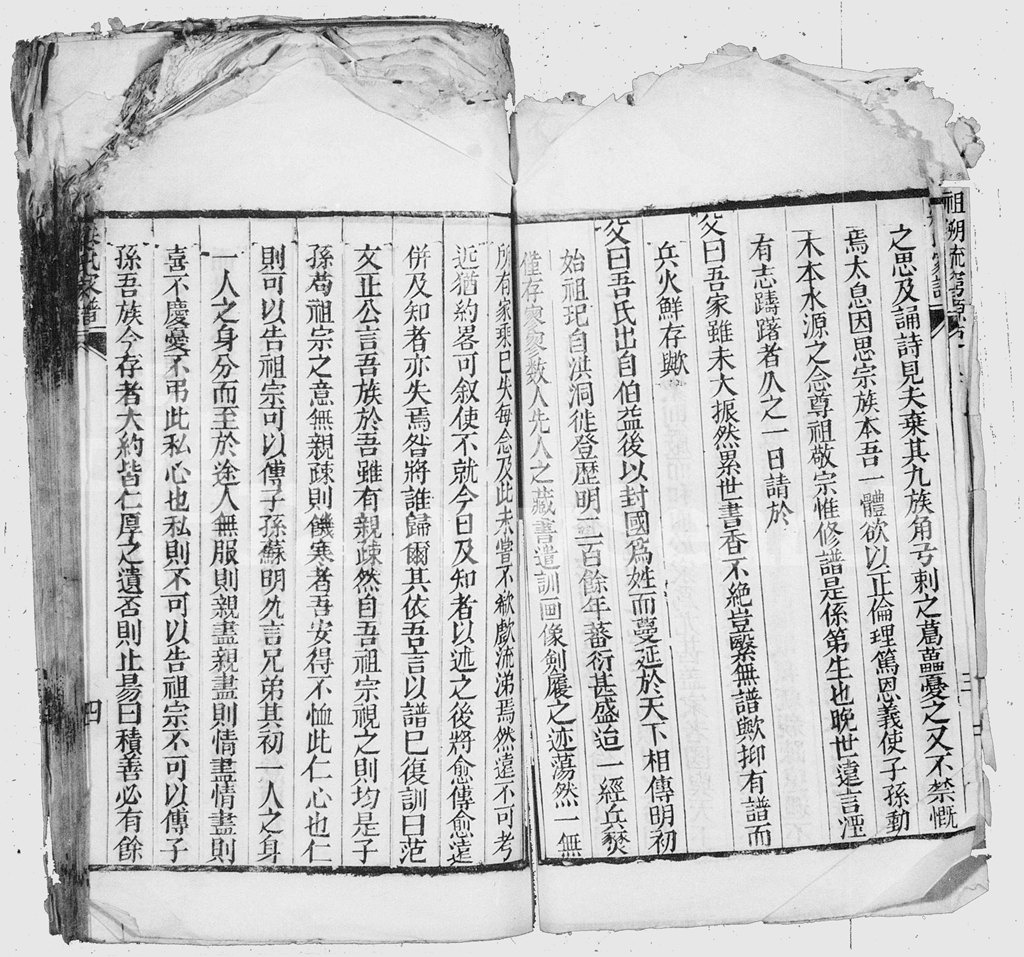 之思及誦詩見夫棄其九族角弓刺之葛藟憂之又不禁慨
焉太息因思宗族本吾一體欲以正倫理篤恩義使子孫動
木本水源之念尊祖敬宗惟修譜是係第生也晚世遠言湮
有志躊躇者久之一日請於
父曰吾家雖未大振然累世書香不絕豈緊無譜歟抑有譜而
兵火鮮存歟
父曰吾氏出自伯益後以封國爲姓而蔓延於天下相傳明初
始祖玘自洪洞徙登歷明三百餘年蕃衍甚盛迨一經兵燹
僅存寥寥數人先人之藏書遺訓画像劍履之迹蕩然一無
所有家乘已失每念及此未嘗不欷歔流涕焉然遠不可考
近猶約畧可叙使不就今日及知者以述之後將愈傳愈遠
併及知者亦失焉咎將誰歸爾其依吾言以譜已復訓曰范
文正公言吾族於吾雖有親疎然自吾祖宗視之則均是子
孫苟祖宗之意無親疎則饑寒者吾安得不恤此仁心也仁
則可以告祖宗可以傳子孫蘇明允言兄弟其初一人之身
一人之身分而至於途人無服則親盡親盡則情盡情盡則
喜不慶憂不弔此私心也私則不可以告祖宗不可以傳子
孫吾族今存者大約皆仁厚之遺否則止易曰積善必有餘
氏家譜
四